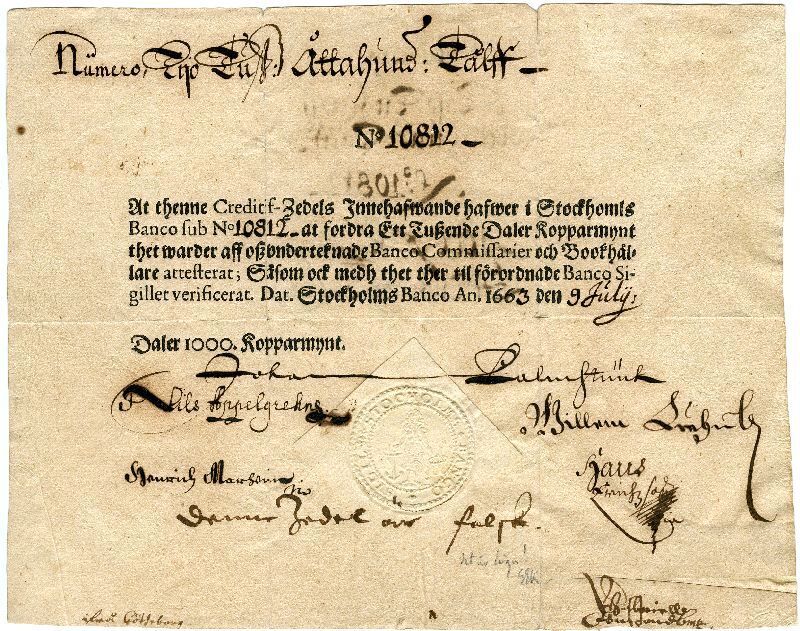 Numero, Tijo Tuß: Åttahund: Tålff
No 10812
At thenne Creditif-Zedels Innehafwande hafwer i Stockholms
Banco sub No 10812 at fordra Ett Tußende Daler Kopparmynt
thet warder aff oß underteknade Banco Commissarier och Bookhål-
lare attesterat; Såsom ock medh thet ther til förordnade Banco Si-
gillet verificerat. Dat. Stockholms Banco An. 1663 den 9 Julij:
Daler 1000. Kopparmynt.
Johan Palmstruck
Nils Koppelgrehn
Willem
Hans
Henrich
Denne Zedel är falsk.